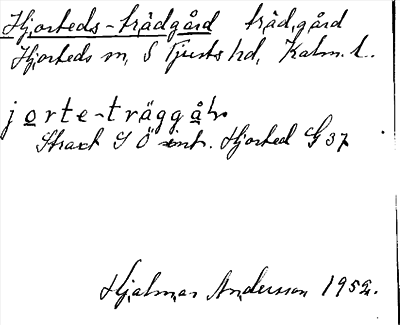 Hjorteds-trädgård trädgård
Hjorteds sn, S Tjusts hd, Kalm. l..
jorte-träggå̱ḷn
Strax S Ö om Hjorted G 37
Hjalmar Andersson 1952.